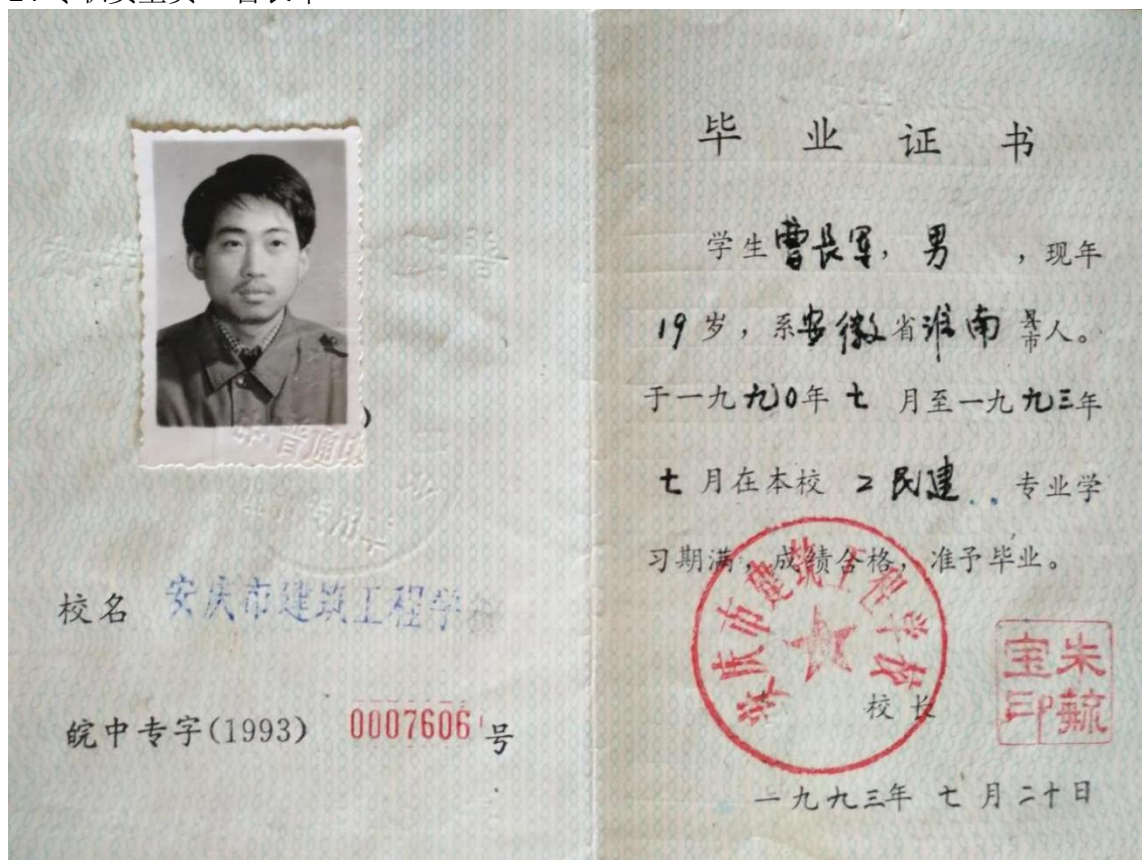 校名 安庆市建筑工程学校
皖中专字(1993) 0007606号
毕业证书
学生曹长军，男，现年
19岁，系安徽省淮南县市人。
于一九九0年七月至一九九三年
七月在本校工民建..专业学
习期满，成绩合格，准予毕业。
安庆市建筑工程学校
校长
朱毓宝印
一九九三年七月二十日